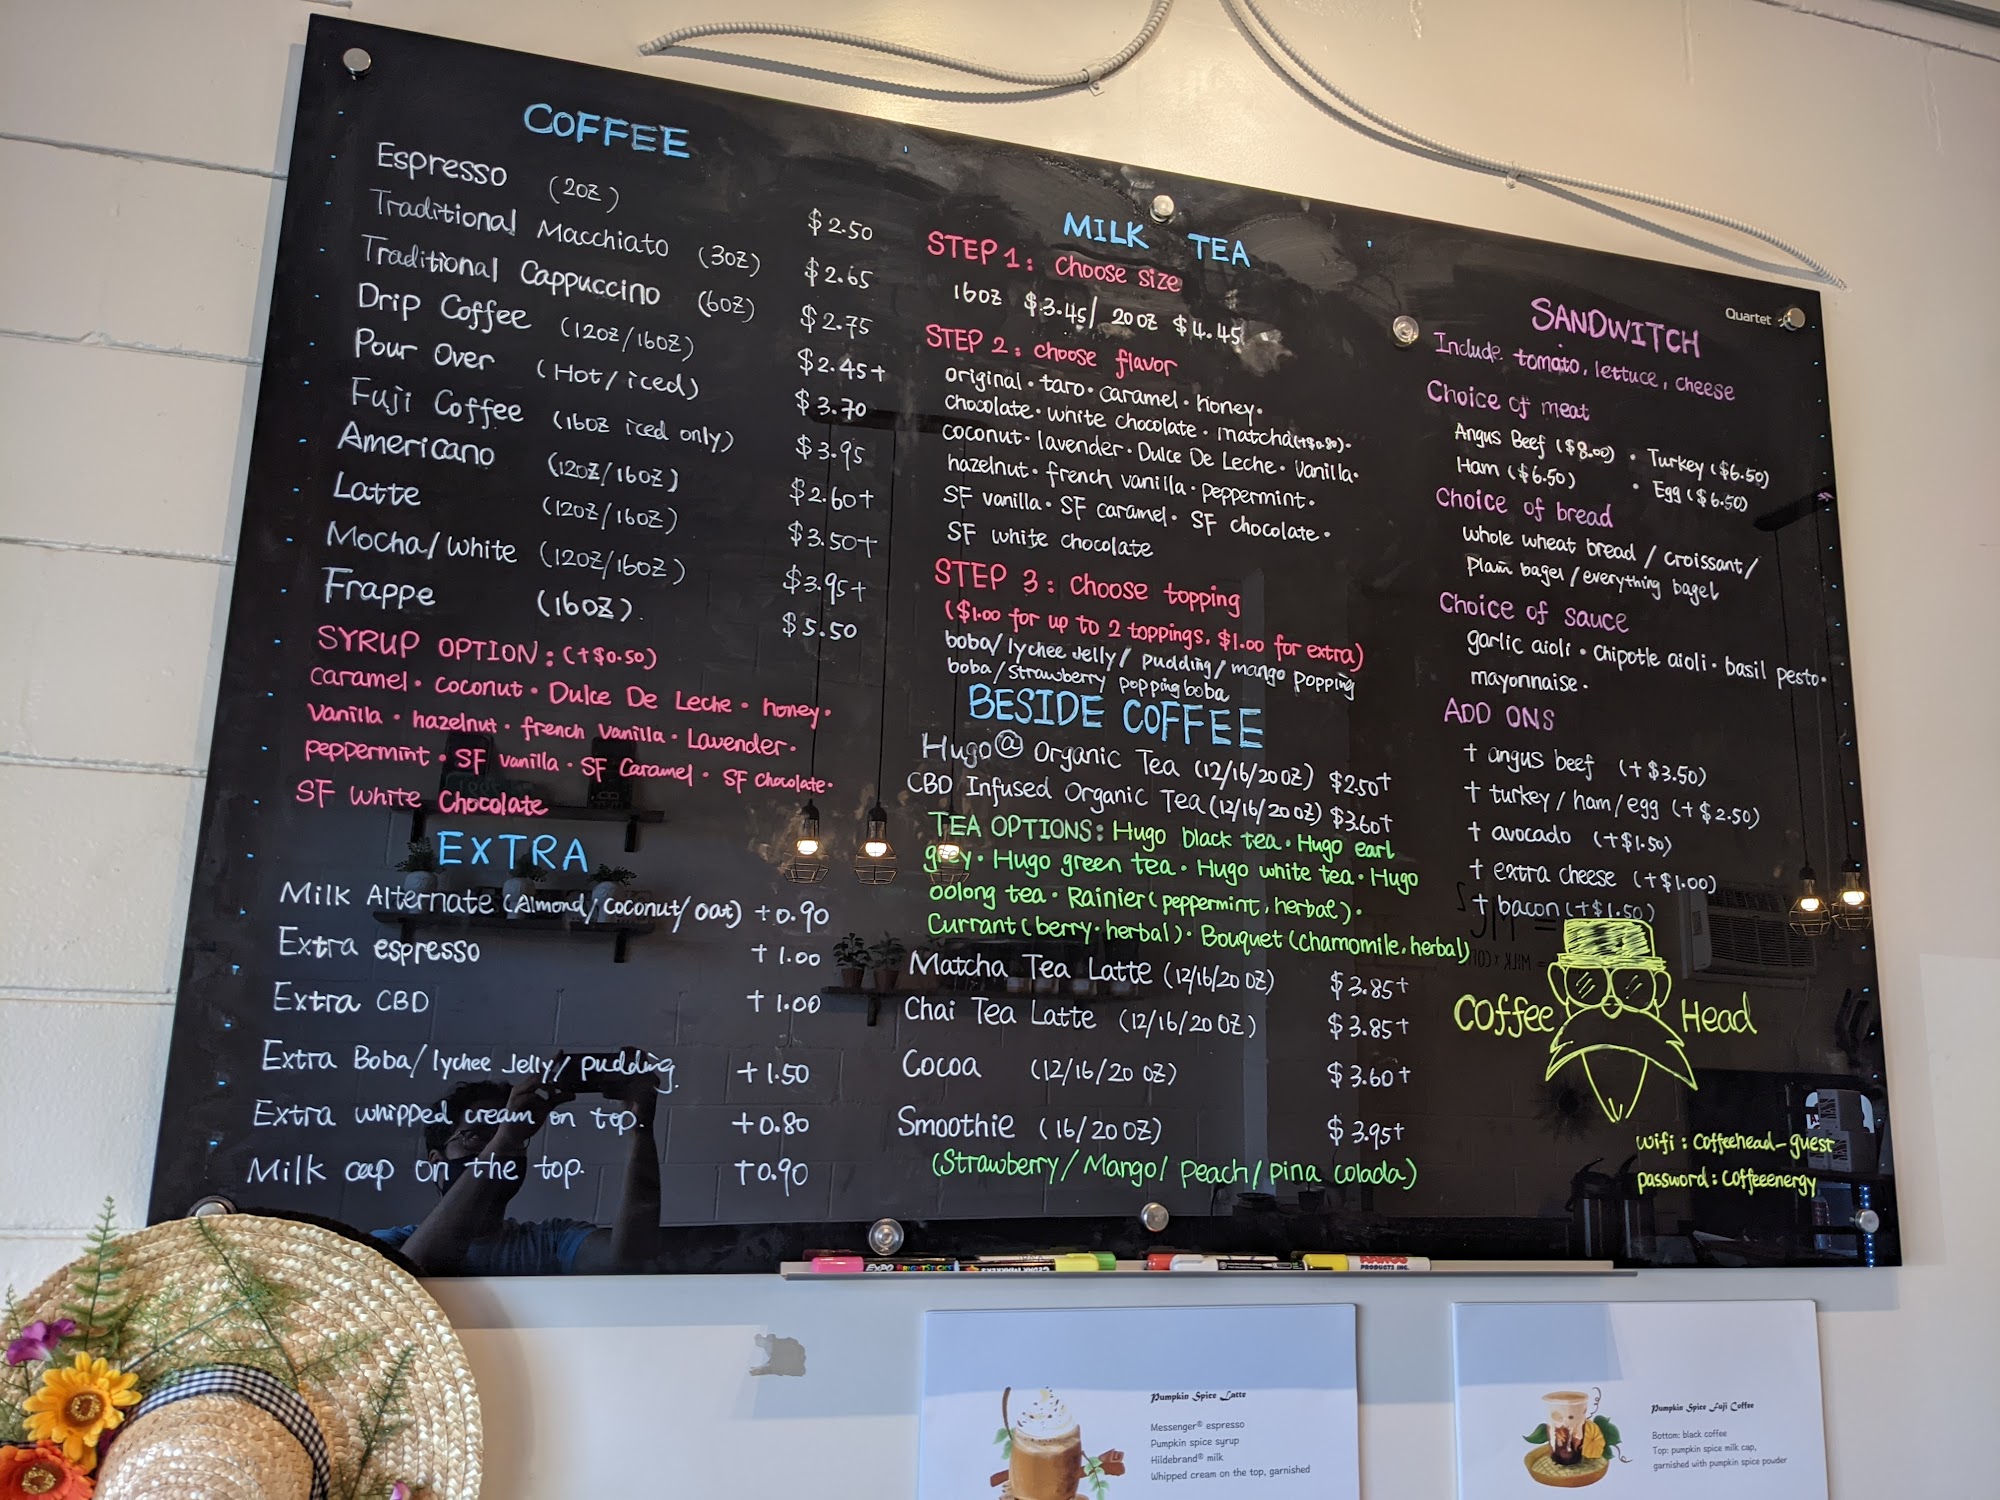 COFFEE
Espresso (2oz) $2.50
Traditional Macchiato (3oz) $2.65
Traditional Cappuccino (6oz) $2.75
Drip Coffee (12oz/16oz) $2.45+
Pour Over (Hot/iced) $3.70
Fuji Coffee (16oz iced only) $3.95
Americano (12oz/16oz) $2.60+
Latte (12oz/16oz) $3.50+
Mocha/white (12oz/16oz) $3.95+
Frappe (16oz) $5.50
SYRUP OPTION: (+$0.50)
caramel · coconut · Dulce De Leche · honey ·
Vanilla · hazelnut · french vanilla · Lavender ·
peppermint · SF vanilla · SF Caramel · SF chocolate ·
SF white Chocolate
EXTRA
Milk Alternate (Almond/coconut/oat) +0.90
Extra espresso +1.00
Extra CBD +1.00
Extra Boba/lychee Jelly/pudding +1.50
Extra whipped cream on top. +0.80
Milk cap on the top. +0.90
MILK TEA
STEP 1: Choose size
16oz $3.45/ 20oz $4.45
STEP 2: choose flavor
original · taro · caramel · honey ·
chocolate · white chocolate · matcha(+$0.80) ·
coconut · lavender · Dulce De Leche · Vanilla ·
hazelnut · french vanilla · peppermint ·
SF vanilla · SF caramel · SF chocolate ·
SF white chocolate
STEP 3: Choose topping
($1.00 for up to 2 toppings, $1.00 for extra)
boba/lychee Jelly/pudding/mango popping
boba/strawberry popping boba
BESIDE COFFEE
Hugo@ Organic Tea (12/16/20oz) $2.50+
CBD Infused Organic Tea (12/16/20oz) $3.60+
TEA OPTIONS: Hugo black tea · Hugo earl
grey · Hugo green tea · Hugo white tea · Hugo
oolong tea · Rainier (peppermint, herbal) ·
Currant (berry · herbal) · Bouquet (chamomile, herbal)
Matcha Tea Latte (12/16/20oz) $3.85+
Chai Tea Latte (12/16/20oz) $3.85+
Cocoa (12/16/20oz) $3.60+
Smoothie (16/20oz) $3.95+
(Strawberry/Mango/peach/pina colada)
Quartet
SANDWITCH
Include tomato, lettuce, cheese
Choice of meat
Angus Beef ($8.00) · Turkey ($6.50)
Ham ($6.50) · Egg ($6.50)
Choice of bread
whole wheat bread / croissant/
Plain bagel/everything bagel
Choice of sauce
garlic aioli · chipotle aioli · basil pesto ·
mayonnaise ·
ADD ONS
+ angus beef (+$3.50)
+ turkey/ham/egg (+$2.50)
+ avocado (+$1.50)
+ extra cheese (+$1.00)
+ bacon (+$1.50)
Coffee Head
wifi: Coffeehead_guest
password: Coffeeenergy
EXPO BRIGHTSTICKS
PRODUCTS INC.
Pumpkin Spice Latte
Messenger® espresso
Pumpkin spice syrup
Hildebrand® milk
Whipped cream on the top, garnished
Pumpkin Spice Fuji Coffee
Bottom: black coffee
Top: pumpkin spice milk cap,
garnished with pumpkin spice powder